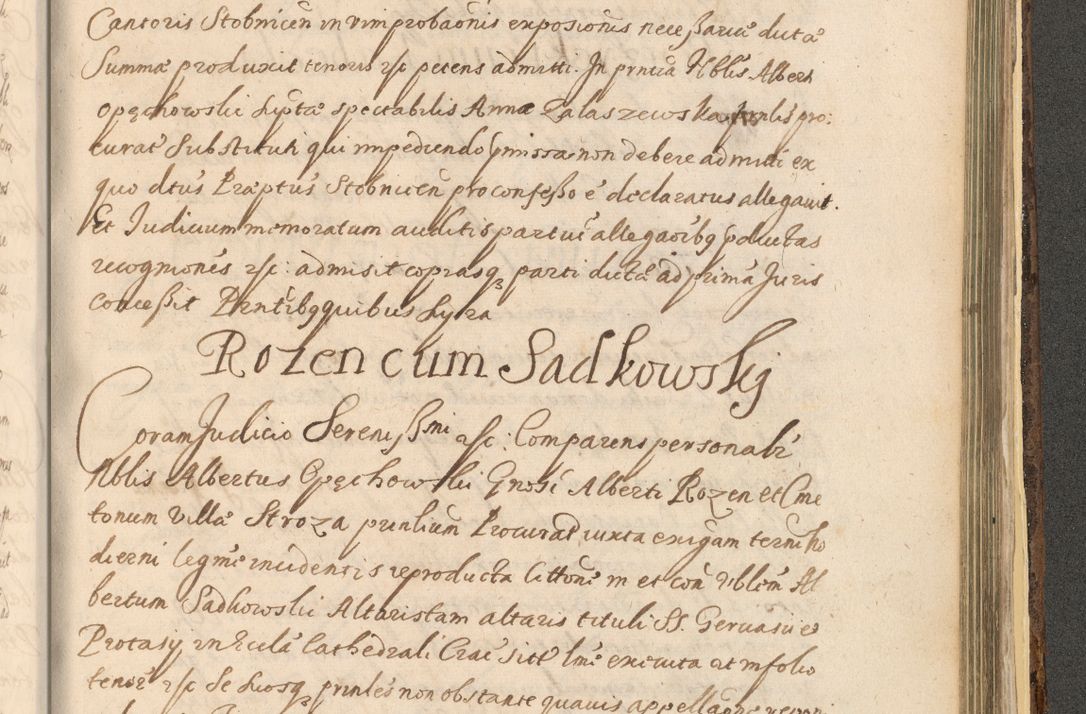 Cantoris Stobnicen in vim probaōnis exposionis necessariæ dictæ
Summæ produxit tenoris &c petens admitti. In pñtia Nblis Alberti
Opęchowski suptæ spectabilis Annæ Zalaszewska prñlis pro:
curat Substituti qui impediendo pmissa non debere admitti ex
quo dtus Præptus Stobnicen pro confesso e declaratus allegavit.
Et Iudicium memoratum auditis partium allegaōibq pductas
recogniones &c: admisit copiasq parti dictæ ad primā Juris
concessit Pñtibq quibus supra
Rozen cum Sadkowsky
Coram Judicio Serenissmi &c: Comparens personalr
Nblis Albertus Opęchowski Gnosi Alberti Rozen et Cme
tonum Villæ Stroza prinlium Procurat iuxta exigam termi ho
dierni legme incidentis reproducta Cittone in et con Vblem Al
bertum Sadkowski Altaristam altaris tituli SS. Gervasii et
Protasy in Eccla Cathedrali Crac sitt lme executa at in folio
tenore &c de suosq prinles non obstante quavis appellaōne